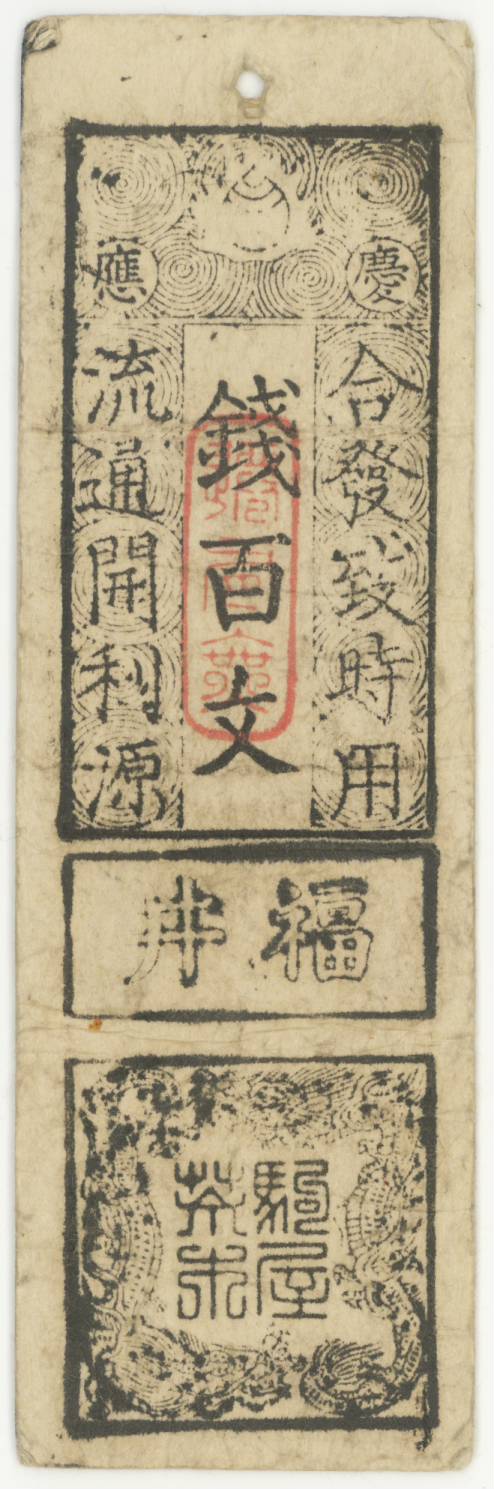 慶應
合發致時用
錢百文
流通開利源
福井
駒屋